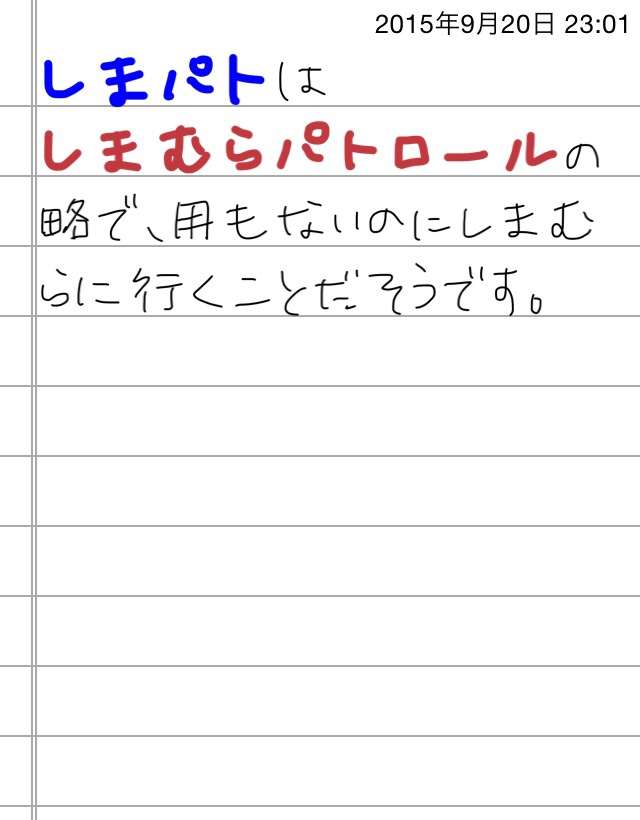 2015年9月20日 23:01
しまパトは
しまむらパトロールの
略で、用もないのにしまむ
らに行くことだそうです。